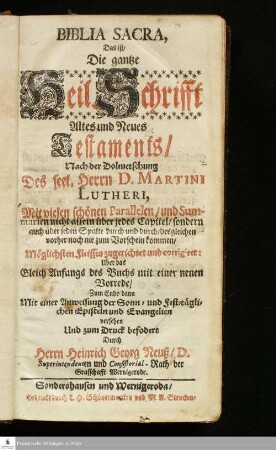 BIBLIA SACRA,
Das ist/
Die gantze
Heil. Schrifft
Altes und Neues
Testaments/
Nach der Dolmetschung
Des seel. Herrn D. MARTINI
LUTHERI,
Mit vielen schönen Parallelen/ und Sum-
marien nicht allein über jedes Capitel/ sondern
auch über jeden Spalte durch und durch/ dergleichen
vorher noch nie zum Vorschein kommen/
Möglichsten Fleisses zugerichtet und corrigiret:
Über das
Gleich Anfangs des Buchs mit einer neuen
Vorrede/
Zum Ende dann
Mit einer Anweisung der Sonn- und Festtägli-
chen Episteln und Evangelien
versehen
Und zum Druck befodert
Durch
Herrn Heinrich Georg Neuß/ D.
Superintendenten und Consistorial-Rath der
Graffschafft Wernigerode.
Sondershausen und Wernigeroda/
und M. A. Strucken/